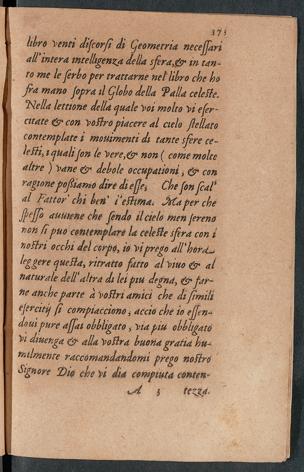 173
libro venti discorsi di Geometria necessari
all'intera intelligenza della sfera, & in tan-
to me le serbo per trattarne nel libro che ho
fra mano sopra il Globo della Palla celeste.
Nella lettione della quale voi molto vi eser-
citate & con vostro piacere al cielo stellato
contemplate i mouimenti di tante sfere ce-
lesti, i quali son le vere, & non (come molte
altre) vane & debole occupationi, & con
ragione possiamo dire di esse, Che son scal'
al Fattor' chi ben' l'estima. Ma per che
spesso auuiene che sendo il cielo men sereno
non si puo contemplare la celeste sfera con i
nostri occhi del corpo, io vi prego all'hora
leggere questa, ritratto fatto al viuo & al
naturale dell'altra di lei piu degna, & far-
ne anche parte à vostri amici che di simili
esercitij si compiacciono, accio che io essen-
doui pure assai obbligato, via piu obbligato
vi diuenga & alla vostra buona gratia hu-
milmente raccomandandomi prego nostro
Signore Dio che vi dia compiuta conten-
A 3 tezza.